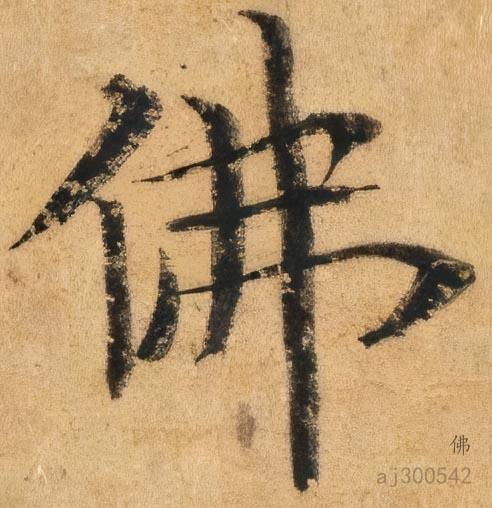 佛
佛
aj300542